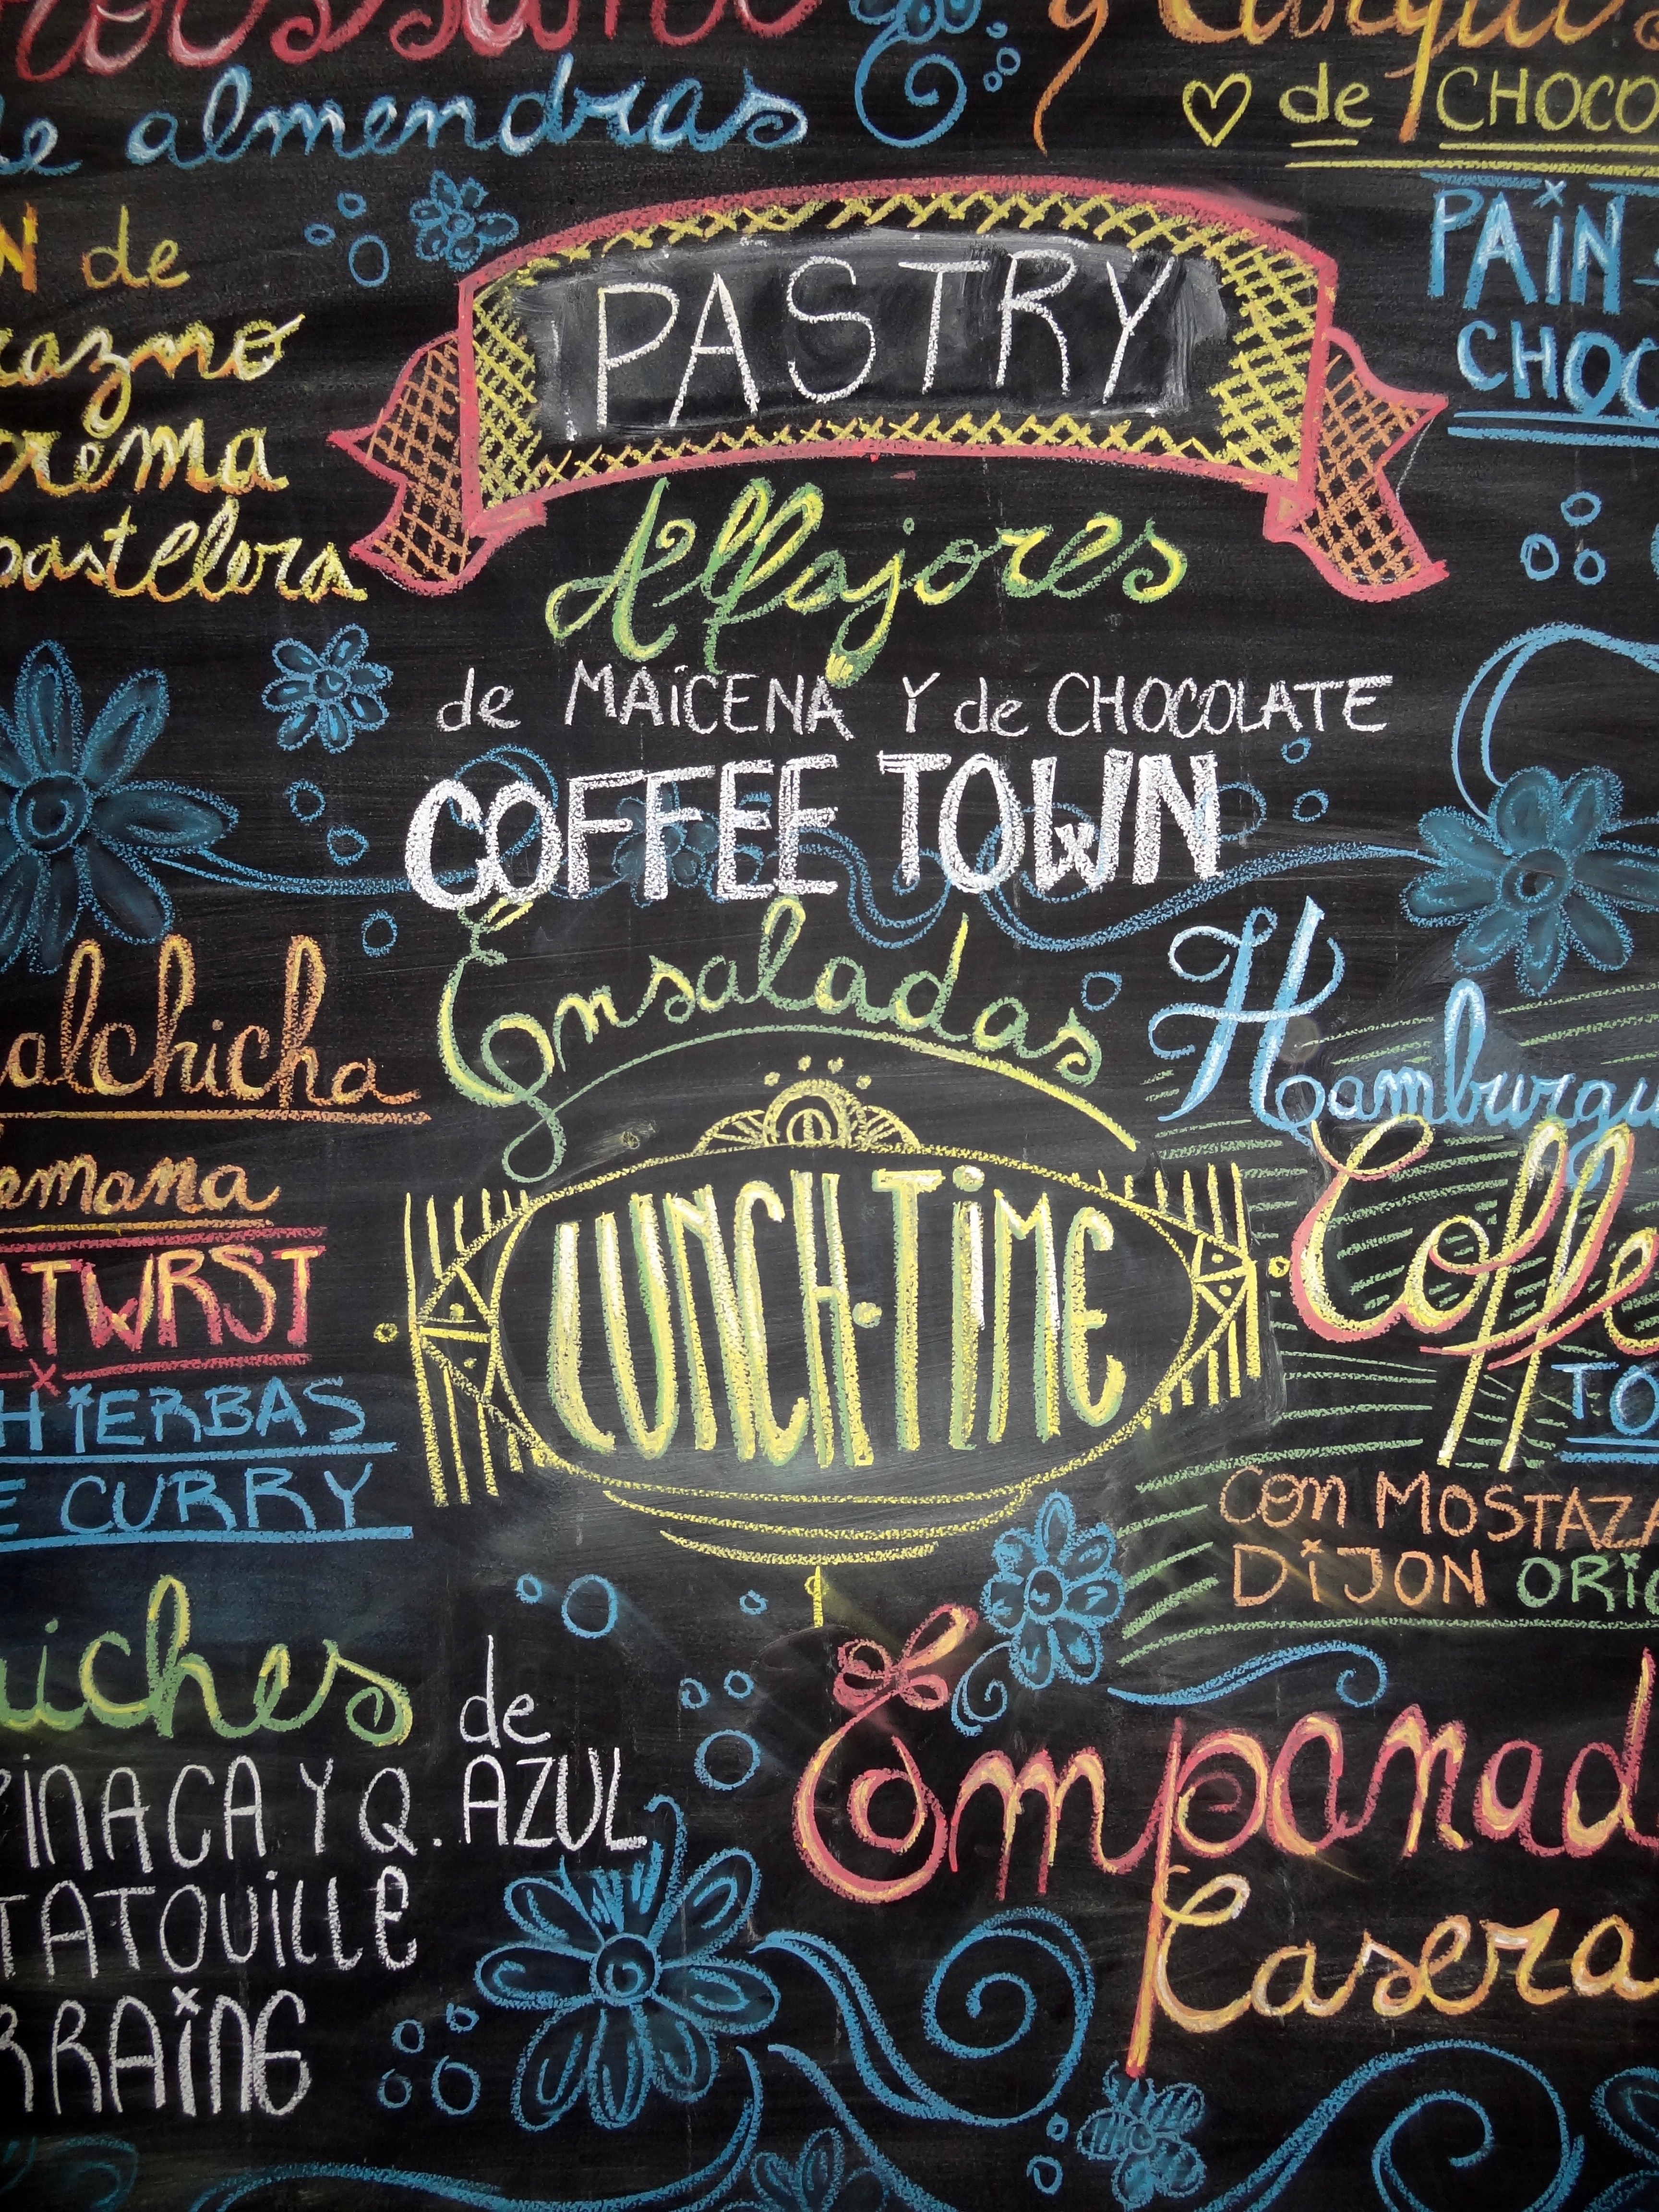 de almendras
de CHOCO
de
crema
pastelera
PASTRY
PAIN
CHOC
Alfajores
de MAICENA Y de CHOCOLATE
COFFEE TOWN
Ensaladas
Hamburgu
alchicha
emana
ATWRST
HIERBAS
E CURRY
LUNCH-TIME
Coffe
TO
CON MOSTAZA
DIJON ORIG
uiches
de
PINACA Y Q. AZUL
TATOUILLE
RRAINE
Empanad
Casera